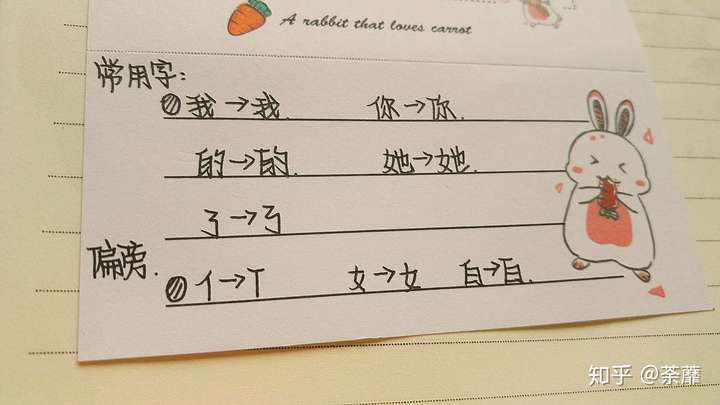 A rabbit that loves carrot
常用字:
我→我. 你→你.
的→的. 她→她.
弓→弓
偏旁.
亻→亻 女→女 白→白.
知乎 @荼蘼